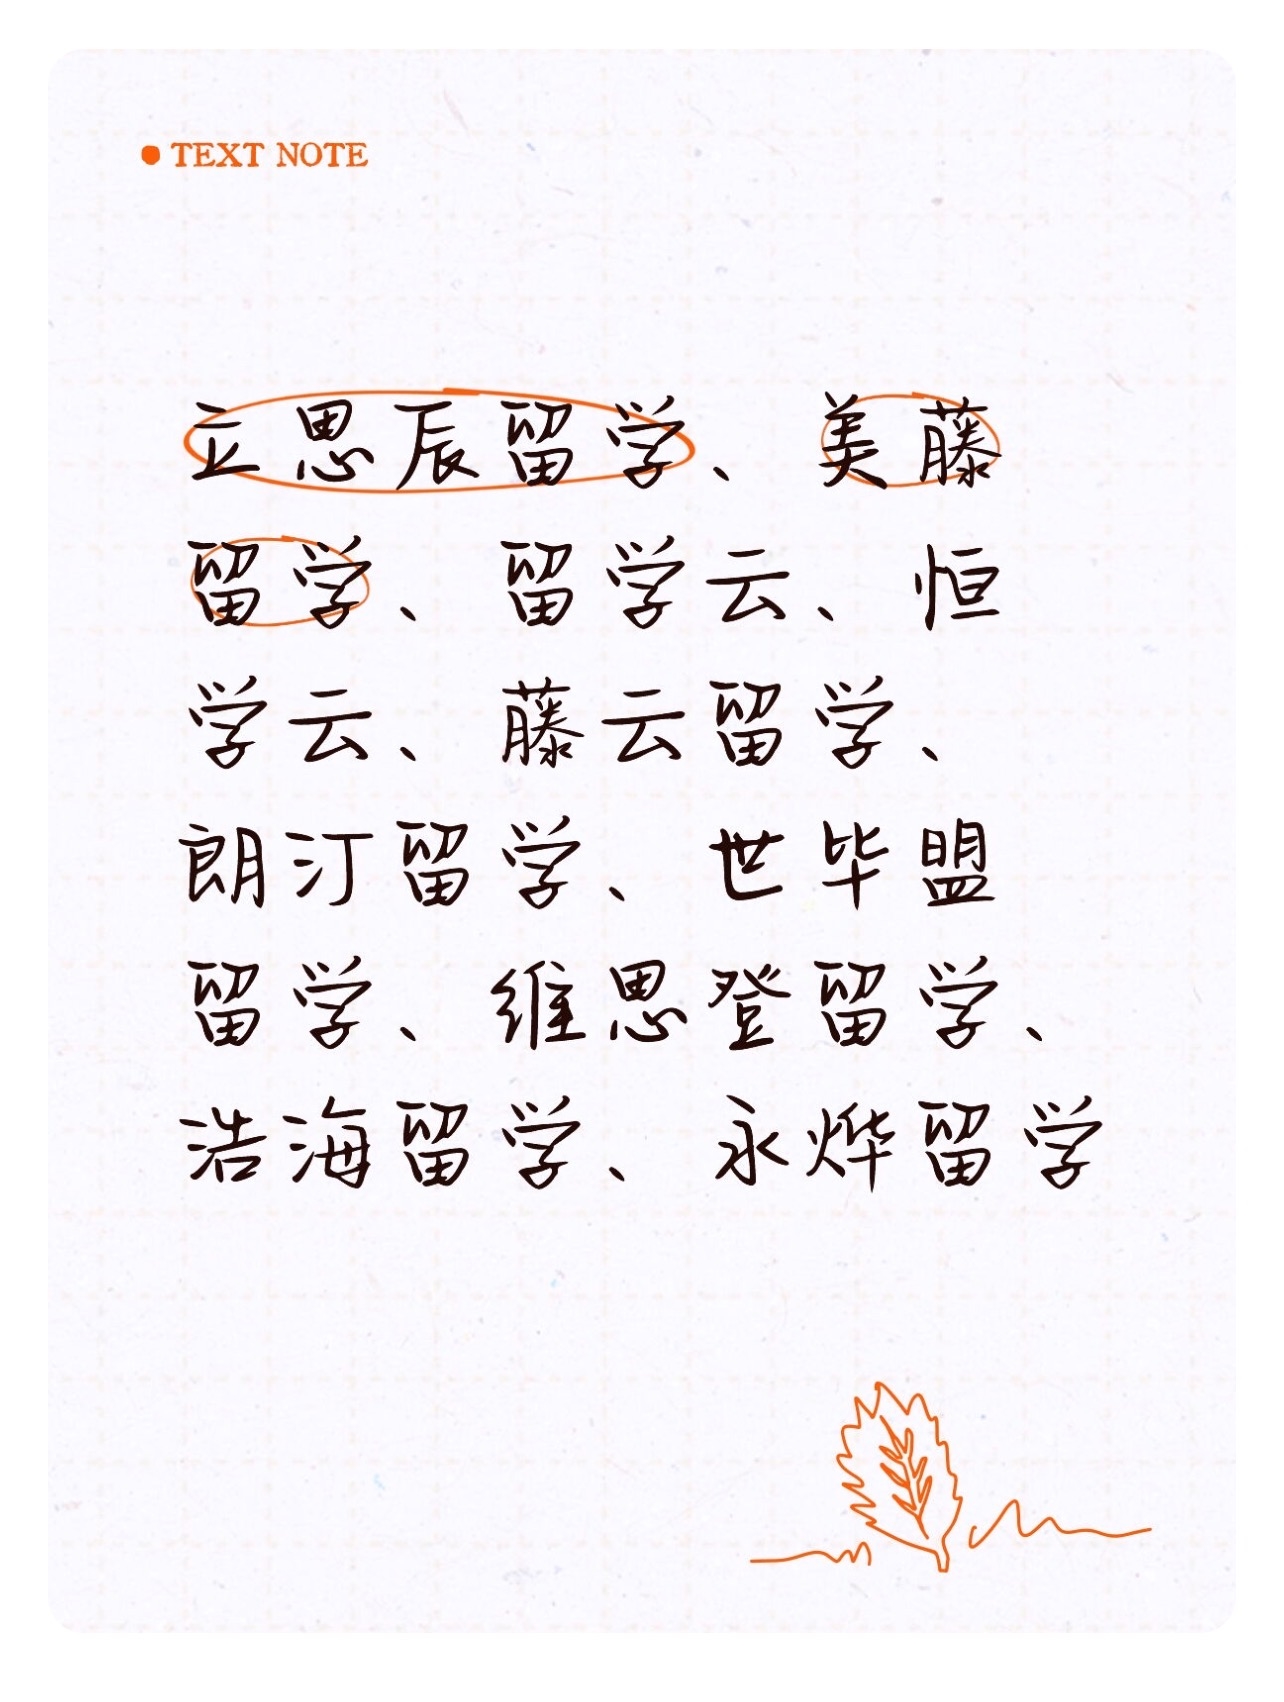 TEXT NOTE
立思辰留学、美藤
留学、留学云、恒
学云、藤云留学、
朗汀留学、世毕盟
留学、维思登留学、
浩海留学、永烨留学